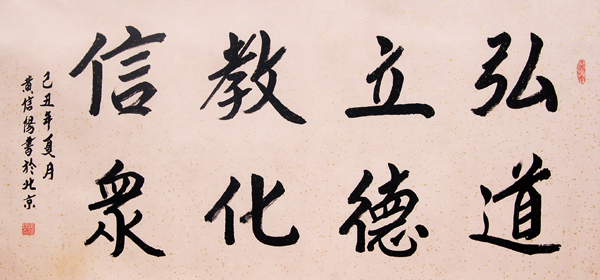 弘道
立德
教化
信眾
己丑年夏月
黄信陽書於北京